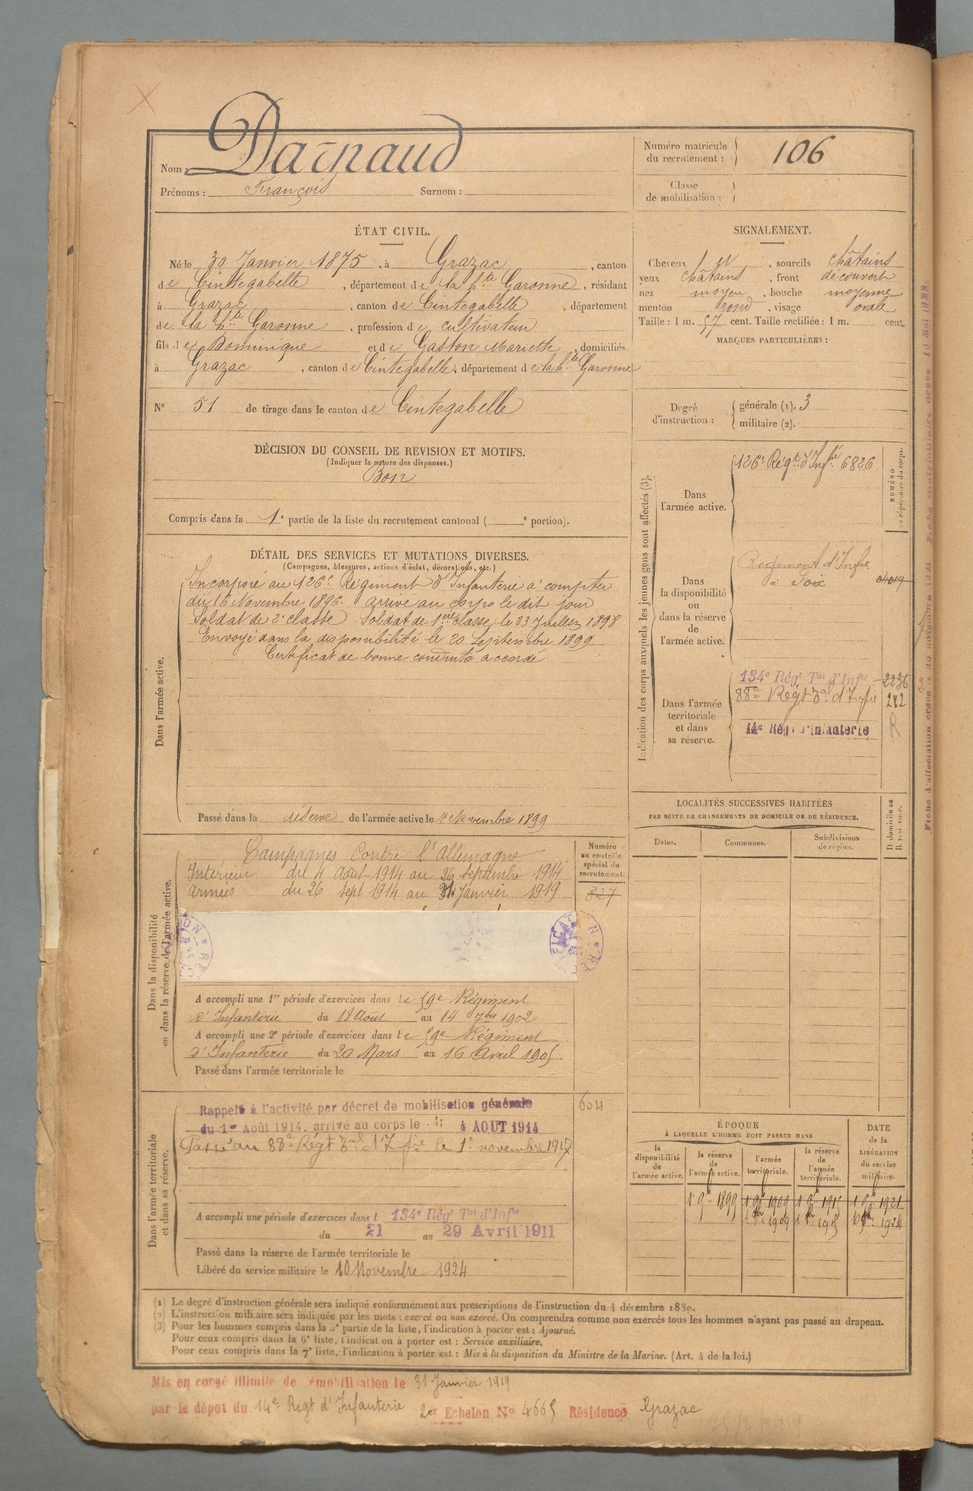 Nom : Darnaud
Prénoms : François Surnom :
Numéro matricule du recrutement : 106
Classe de mobilisation :
ÉTAT CIVIL.
Né le 30 Janvier 1875, à Grazac, canton
de Cintegabelle, département de la Hte Garonne, résidant
à Grazac, canton de Cintegabelle, département
de la Hte Garonne, profession de cultivateur
fils de Dominique et de Gaston Mariette, domiciliés
à Grazac, canton de Cintegabelle, département de la Hte Garonne
N° 51 de tirage dans le canton de Cintegabelle
SIGNALEMENT.
Cheveux, sourcils châtains
yeux châtains, front découvert
nez moyen, bouche moyenne
menton rond, visage ovale
Taille : 1 m. 57 cent. Taille rectifiée : 1 m. cent.
MARQUES PARTICULIÈRES :
Degré d'instruction : générale (1). 3
militaire (2).
DÉCISION DU CONSEIL DE REVISION ET MOTIFS.
(Indiquer la nature des dispenses.)
Bon
Compris dans la 1e partie de la liste du recrutement cantonal ( e portion).
DÉTAIL DES SERVICES ET MUTATIONS DIVERSES.
(Campagnes, blessures, actions d'éclat, décorations, etc.)
Dans l'armée active.
Incorporé au 126e Régiment d'Infanterie à compter
du 16 Novembre 1896 arrivé au corps le dit jour
Soldat de 2e classe Soldat de 1ere classe le 23 Juillet 1898
Envoyé dans la disponibilité le 20 Septembre 1899
Certificat de bonne conduite accordé
Passé dans la réserve de l'armée active le 1r Novembre 1899
Indication des corps auxquels les jeunes gens sont affectés (3).
NUMÉRO
Dans l'armée active.
126e Régt d'Infie 6826
Dans la disponibilité ou dans la réserve de l'armée active.
Régiment d'Infie
à Foix
Dans l'armée territoriale et dans sa réserve.
134e Rég Tal d'Infie 2236
88me Régt Tal d'Infie 282
14e Rég d'Infanterie
LOCALITÉS SUCCESSIVES HABITÉES
PAR SUITE DE CHANGEMENTS DE DOMICILE OU DE RÉSIDENCE.
Dates. Communes. Subdivisions de région.
D domicile ou R résidence.
Dans la disponibilité ou dans la réserve de l'armée active.
Numéro au contrôle spécial du recrutement.
827
Campagnes Contre l'Allemagne
Intérieur du 4 Août 1914 au 26 septembre 1914
Armées du 26 Sept 1914 au 31 Janvier 1919
A accompli une 1re période d'exercices dans le 59e Régiment
d'Infanterie du 18 Août au 14 7bre 1902.
A accompli une 2e période d'exercices dans le 59e Régiment
d'Infanterie du 20 Mars au 16 Avril 1905.
Passé dans l'armée territoriale le
Dans l'armée territoriale et dans sa réserve.
604
Rappelé à l'activité par décret de mobilisation générale
du 1er Août 1914, arrivé au corps le 4 AOUT 1914
Passé au 88e Régt Tal d'Infie le 1r novembre 1917
A accompli une période d'exercices dans l 134e Rég Tal d'Infie
du 21 au 29 Avril 1911
Passé dans la réserve de l'armée territoriale le
Libéré du service militaire le 10 Novembre 1924
ÉPOQUE
À LAQUELLE L'HOMME DOIT PASSER DANS
la disponibilité de l'armée active.
la réserve de l'armée active.
l'armée territoriale.
la réserve de l'armée territoriale.
DATE de la LIBÉRATION du service militaire.
(1) Le degré d'instruction générale sera indiqué conformément aux prescriptions de l'instruction du 4 décembre 1889.
(2) L'instruction militaire sera indiquée par les mots : exercé ou non exercé. On comprendra comme non exercés tous les hommes n'ayant pas passé au drapeau.
(3) Pour les hommes compris dans la 5e partie de la liste, l'indication à porter est : Ajourné.
Pour ceux compris dans la 6e liste, l'indication à porter est : Service auxiliaire.
Pour ceux compris dans la 7e liste, l'indication à porter est : Mis à la disposition du Ministre de la Marine. (Art. 4 de la loi.)
Mis en congé illimité de démobilisation le 31 Janvier 1919
par le dépôt du 14e Régt d'Infanterie 2e Echelon N° 4665 Résidence Grazac